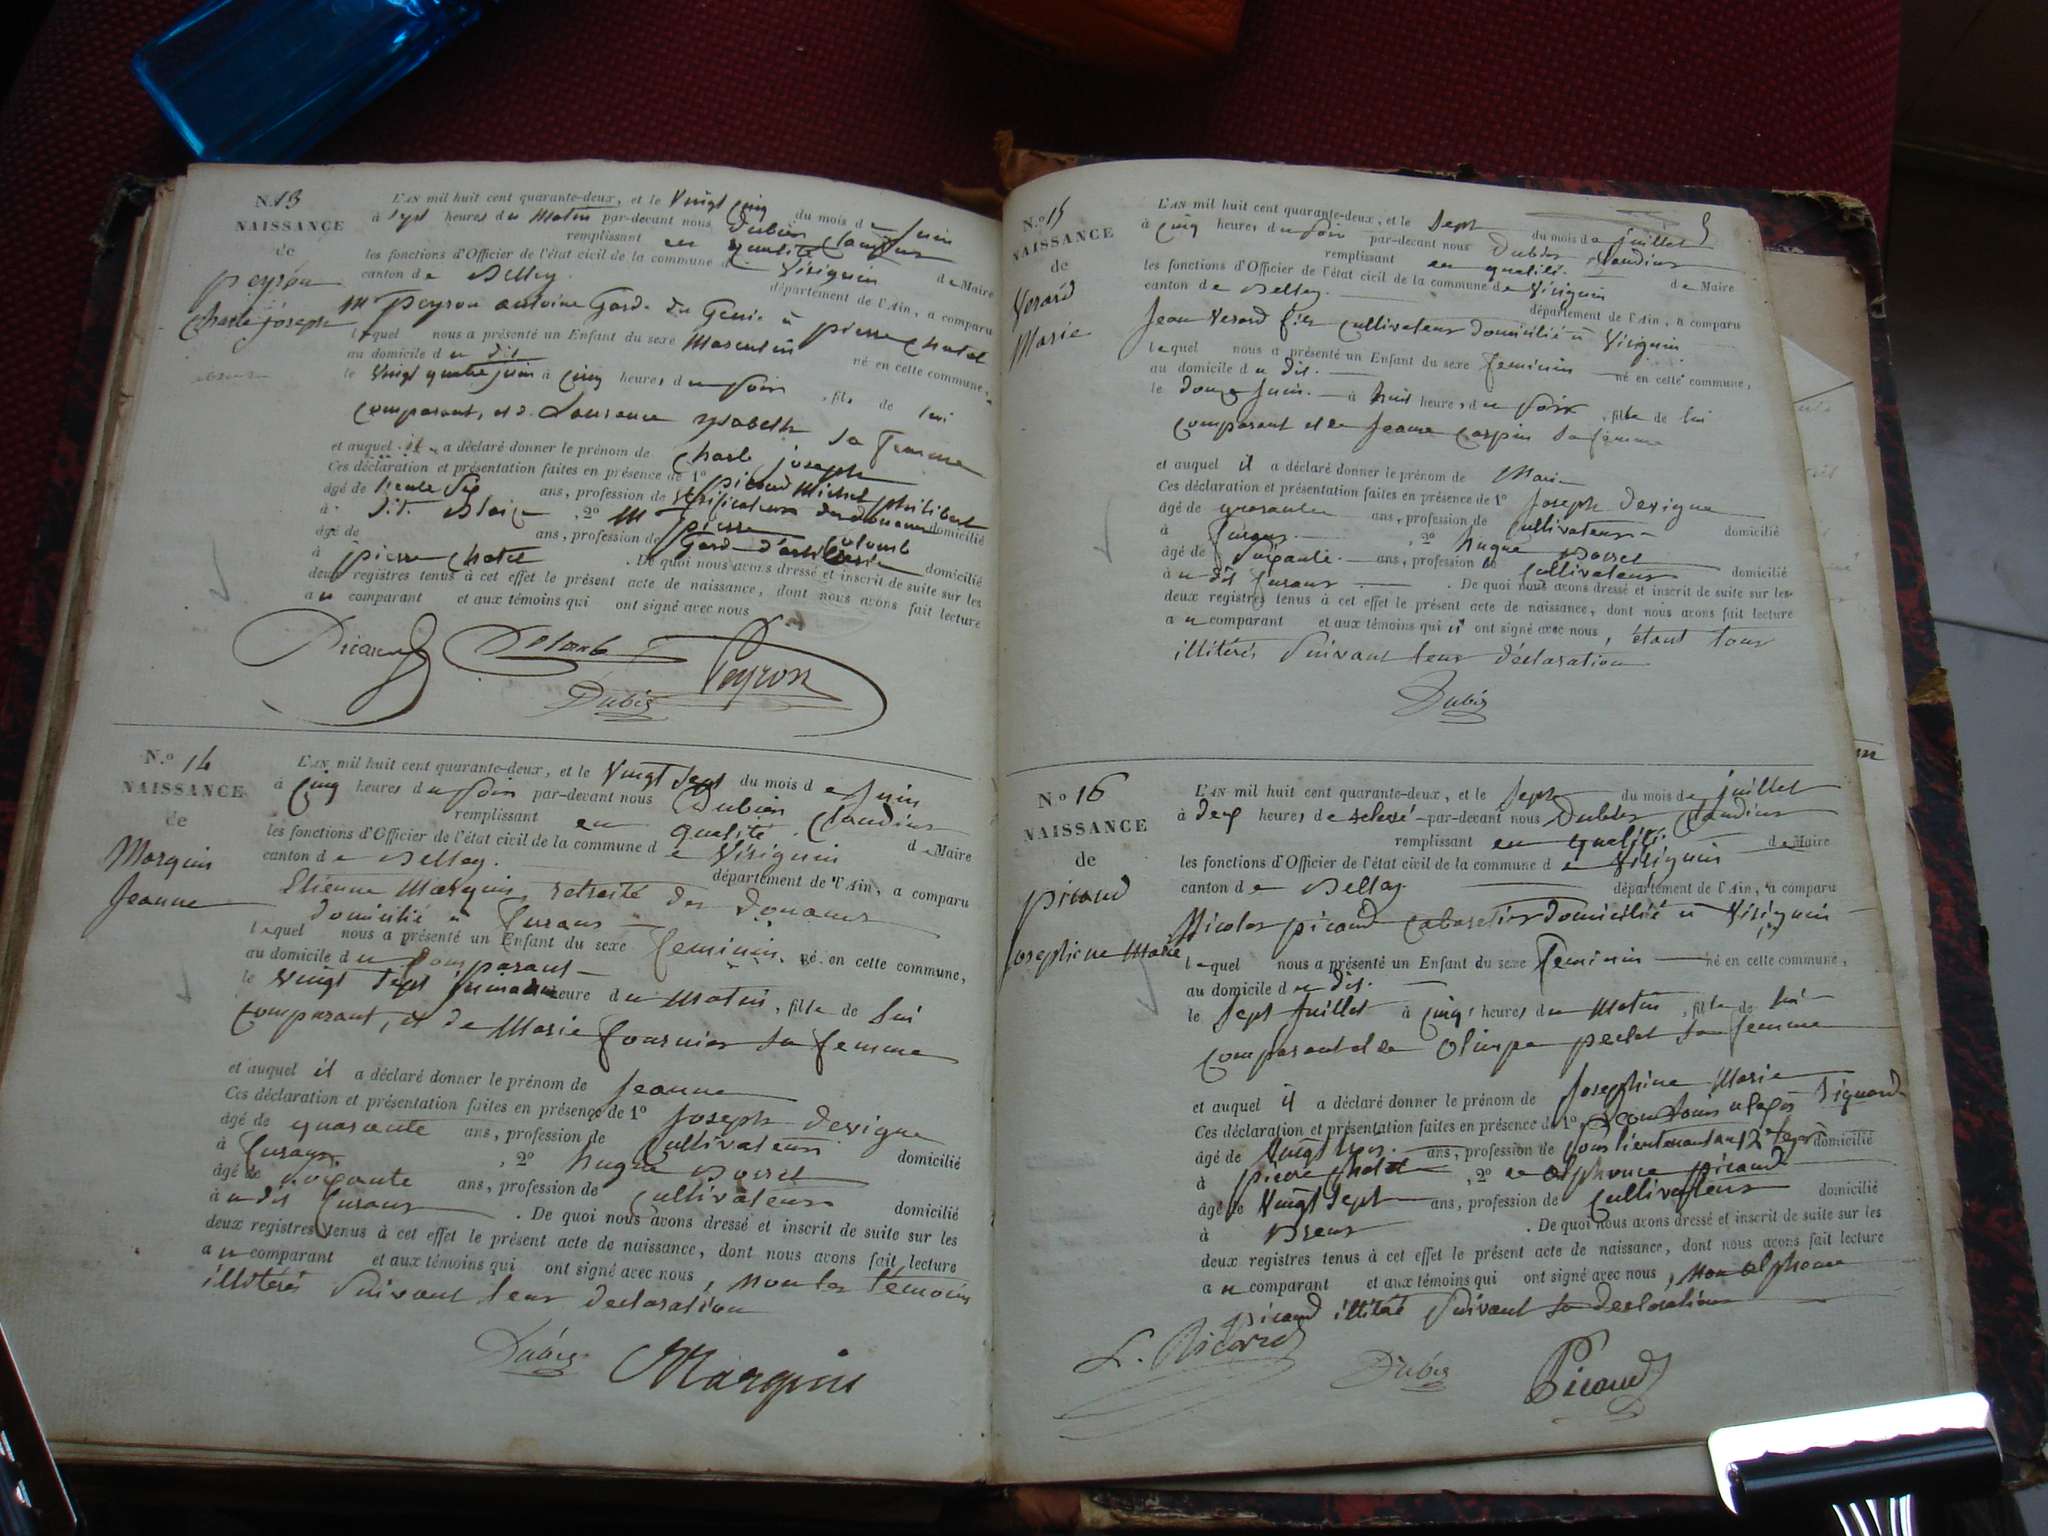 N. 13
NAISSANCE
de
peyron
Charle joseph
L'AN mil huit cent quarante-deux, et le Vingt cinq du mois de Juin
à sept heures du Matin par-devant nous Dubier Claudius
remplissant en qualité de Maire
les fonctions d'Officier de l'état civil de la commune de Virignin
canton de Belley. département de l'Ain, a comparu
Mr Peyron antoine Garde du Genie à pierre Chatel
lequel nous a présenté un Enfant du sexe Masculin né en cette commune,
au domicile du dit
le Vingt quatre juin à Cinq heures du Soir, fils de lui
comparant, et d. Laurence ysabeth sa Femme
et auquel il a déclaré donner le prénom de Charle joseph
Ces déclaration et présentation faites en présence de 1º picaud Michel philibert
âgé de trente six ans, profession de vérificateur des douanes domicilié
à, 2º Mr pierre Colomb
âgé de ans, profession de Garde d'artillerie domicilié
à pierre Chatel. De quoi nous avons dressé et inscrit de suite sur les
deux registres tenus à cet effet le présent acte de naissance, dont nous avons fait lecture
au comparant et aux témoins qui ont signé avec nous
Picaud Colomb Peyron
Dubier
N.º 14
NAISSANCE
de
Marquin
Jeanne
L'AN mil huit cent quarante-deux, et le Vingt Sept du mois de Juin
à Cinq heures du Soir par-devant nous Dubier Claudius
remplissant en qualité de Maire
les fonctions d'Officier de l'état civil de la commune de Virignin
canton de Belley. département de l'Ain, a comparu
Etienne Marquin retraité des Douanes
domicilié à
lequel nous a présenté un Enfant du sexe feminin né en cette commune,
au domicile du Comparant
le Vingt Sept heure du Matin, fille de lui
comparant, et de Marie fournier sa femme
et auquel il a déclaré donner le prénom de Jeanne
Ces déclaration et présentation faites en présence de 1º Joseph Devigne
âgé de quarante ans, profession de Cultivateur domicilié
à, 2º hugue
âgé de Soixante ans, profession de Cultivateur domicilié
à u dit. De quoi nous avons dressé et inscrit de suite sur les
deux registres tenus à cet effet le présent acte de naissance, dont nous avons fait lecture
au comparant et aux témoins qui ont signé avec nous, non les témoins
illitérés Suivant leur declaration
Dubier Marquin
N.º 15
NAISSANCE
de
Verard
Marie
5
L'AN mil huit cent quarante-deux, et le Sept du mois de juillet
à cinq heures du Soir par-devant nous Dubier Claudius
remplissant en qualité de Maire
les fonctions d'Officier de l'état civil de la commune de Virignin
canton de Belley. département de l'Ain, a comparu
Jean Verard fils Cultivateur Domicilié à Virignin
lequel nous a présenté un Enfant du sexe feminin né en cette commune,
au domicile du dit.
le douze Juin. à huit heures du Soir, fille de lui
comparant et de Jeanne Carpin Sa femme
et auquel il a déclaré donner le prénom de Marie
Ces déclaration et présentation faites en présence de 1º Joseph Devigne
âgé de quarante ans, profession de Cultivateur domicilié
à, 2º hugue
âgé de Soixante. ans, profession de Cultivateur domicilié
à u dit. De quoi nous avons dressé et inscrit de suite sur les
deux registres tenus à cet effet le présent acte de naissance, dont nous avons fait lecture
au comparant et aux témoins qui ont signé avec nous, étant tous
illitérés Suivant leur déclaration
Dubier
Nº 16
NAISSANCE
de
picaud
Josephine Marie
L'AN mil huit cent quarante-deux, et le Sept du mois de juillet
à deux heures de relevé par-devant nous Dubier Claudius
remplissant en qualité. de Maire
les fonctions d'Officier de l'état civil de la commune de Virignin
canton de Belley. département de l'Ain, a comparu
Nicolas picaud Cabaretier domicilié à Virignin
lequel nous a présenté un Enfant du sexe feminin né en cette commune,
au domicile du dit.
le Sept Juillet à cinq heures du Matin, fille de lui
comparant et de Olimpe peclet sa femme
et auquel il a déclaré donner le prénom de Josephine Marie
Ces déclaration et présentation faites en présence de 1º
âgé de Vingt trois. ans, profession de Sous lieutenant au 12e domicilié
à pierre chatel, 2º alphonce picaud
âgé de Vingt Sept ans, profession de Cultivateur domicilié
à. De quoi nous avons dressé et inscrit de suite sur les
deux registres tenus à cet effet le présent acte de naissance, dont nous avons fait lecture
au comparant et aux témoins qui ont signé avec nous, non alphonce
picaud illitéré Suivant sa declaration
Dubier Picaud